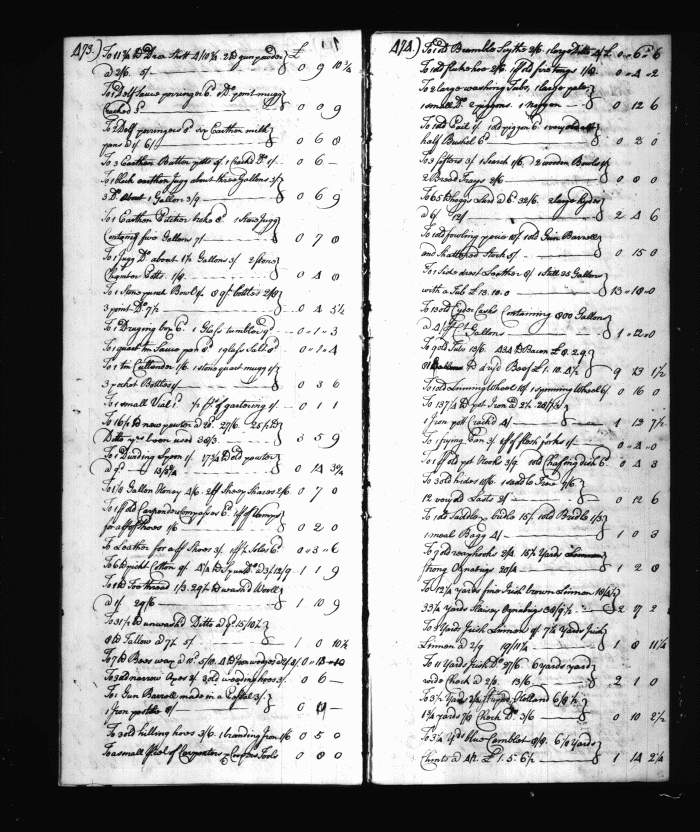 473.)
To 11¾ lb Drop Shott 4/10¾ 2 lb gun powder £
a 2/6. 5/ 0 9 10¾
To 1 Delf Sauce porringer 6d. 1 Do point mugg
Cracked 3d. 0 0 9
To Delf porringers 8d six Earthen milk
pans 6/ 0 6 8
To 3 Earthen Butter potts 5/ 1 Crack'd Do 1/ 0 6 —
To 1 Earthen Jugg about three Gallons 3/
3 Do about 1 Gallon 3/9 0 6 9
To 1 Earthen Pitcher broke 1 Stone Jugg
Containg five Gallons 7/ 0 7 8
To 1 Jugg Do about 1½ Gallons 3/ 2 stone
Potts 1/8 0 4 8
To 1 Stone punch Bowl 8 qt bottles 2/8
3 point Do 7½ 0 4 5½
To 1 Box 6d. 1 Glass tumbler 9d 0 1 3
To 1 quart tin Sauce pan 8d 1 glass Salt 8d 0 1 4
To 1 tin Cullender 1/6 1 stone quart mugg 1/
3 pocket Bottles 1/ 0 3 6
To 1 small Vial 1d. of gartering 1/ 0 1 1
To 16½ lb new powter 20d. 27/6 25½ lb
Ditto very been used 38/3 3 5 9
To 1 Spoon 1/ 17¾ lb old powter
a 9d 13/3¾ 0 14 3¾
To 1/8 Gallon Honey 4/6 2 pr Sheep Shares 2/6 0 7 0
To 1 pr old Carpenders Compasses 6d 1 pr of
for a pr of Shoes 1/6 0 2 0
To Leather for a pr Shoes 3/ 1 pr Soles 6d 0 3 6
To 6 lb pickt Cotton 9/ 4¼ lb Spun Do a 3/ 12/9 1 1 9
To 1 lb Toe thread 1/3 29½ lb wash'd Wooll
a 1/ 29/6 1 10 9
To 31½ lb unwash'd Ditto a 15/10½
8 lb Tallow a 7½ 5/ 1 0 10½
To 7 lb Bees wax a 10d 5/10 4 lb Iron wedges 0 13 10
To 3 old narrow Axes 3/ 3 old weeding hoes 3/ 0 6 —
To 1 Gun Barrell made in a
1 Iron pestle 0 4 —
To 3 old hilling hoes 3/6 1 branding Iron 1/6 0 5 0
To a small of Carpenters & Coopers Tools 0 8 0
474.)
To 1 old Bramble Scythe 2/6 1 large Ditto 4/ £ 0 6 6
To 1 old fluke hoe 2/6 1 pr old fire tongs 1/8 0 4 2
To 2 large washing Tubs, 1 large pale
1 small Do 2 piggons 1 Noggen 0 12 6
To 1 old Pail 1/ 1 old piggen 6d. 1 very old
half Bushel 6d. 0 2 0
To 3 sifters 3/ 1 Search 1/6 2 wooden Bowls
2 Bread Trays 2/6 0 8 0
To 65 lb hoggs Lard a 6d 32/6 2 large hydes
a 6/ 12/ 2 4 6
To 1 old fowling piece 10/ 1 old Gun Barrell
and Shattered Stock 5/ 0 15 0
To 1 Side drest Leather 8/ 1 still 95 Gallons
with a Tub £ 13.10.0 13 18 0
To 13 old Cyder Casks Containing 800 Gallons
a 4/ pr Ct Gallons 1 12 0
To 9 old Tubs 13/6 434 lb Bacon £ 8.2.9
81 lb dryd Beef £ 1.10.4½ 9 13 1½
To 1 old Linning Wheel 10/ 1 spinning Wheel 6/ 0 16 0
To 137¼ lb pot Iron a 2½ 28/7½
1 Iron pott Crack'd 4/ 1 12 7½
To 1 frying Pan 3/ 1 pr of flesh forks 1/ 0 4 0
To 1 pr old pot Hooks 3/9 1 old Chafing dish 6d 0 4 3
To 3 old hides 10/6
12 very old Lasts 2/ 0 12 6
To 1 old Saddle & bridle 15/ 1 old Bridle 1/3
1 meal Bagg 4/ 1 0 3
To 2 old 2/4 15½ Yards
strong Oznabrigs 20/4 1 2 8
To 12¼ Yards fine Irish brown Linnen 18/4½
33¼ Yards Oznabrigs 38/9½ 2 17 2
To 3 Yards Irish Linnen 9/ 7¼ Yards Irish
Linnen a 2/9 19/11¼ 1 8 11¼
To 11 Yards Irish Do 27/6 6 Yards yard
wide Check a 2/3 13/6 2 1 0
To 3½ Yards Striped Holland 6/8½
1¾ yards ⅞ Check Do 3/6 0 10 2½
To 3¼ Yds blue Camblet 8/9. 6½ Yards
Chints a 4/2 £ 1.5.6½ 1 14 2¼